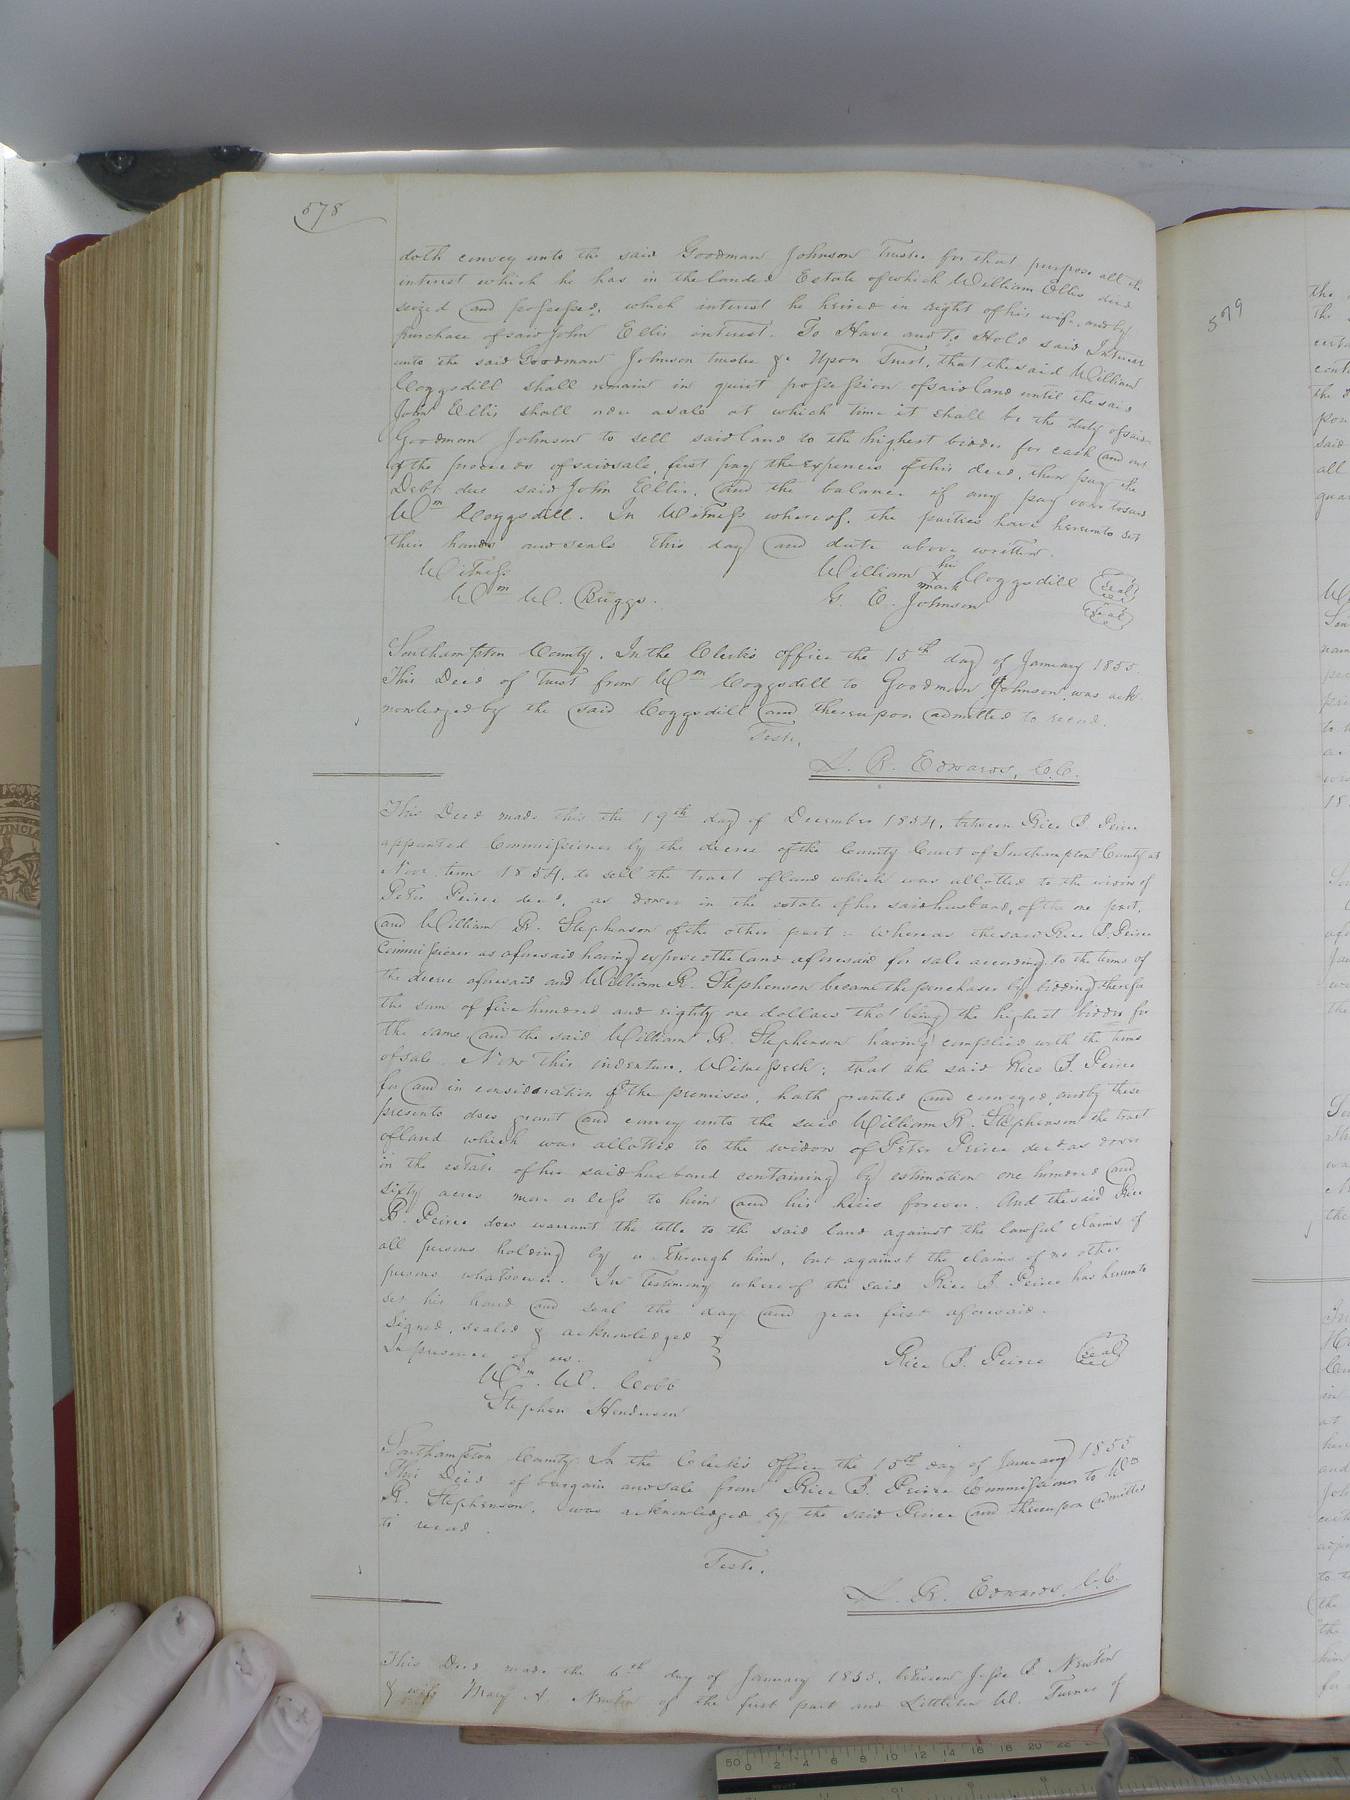 578
doth convey unto the said Goodman Johnson Trustee for that purpose all the
interest which he has in the landed Estate of which William Ellis died
seized and possessed, which interest he heired in right of his wife, and by
purchase of said John Ellis interest. To Have and to Hold said Interest
unto the said Goodman Johnson trustee &c Upon Trust, that the said William
Coggsdill shall remain in quiet possession of said land until the said
John Ellis shall a sale at which time it shall be the duty of said
Goodman Johnson to sell said land to the highest bidder for cash and out
of the proceeds of said sale, first pay the expences of this deed, then pay the
Debt due said John Ellis, and the balance if any pay over to said
Wm Coggsdill. In Witness whereof, the parties have hereunto set
their hands and seals this day and date above written.
Witness
William his x mark Coggsdill (seal)
Wm W. Briggs.
G. E. Johnson (seal)
Southampton County. In the Clerk's office the 15th day of January 1855.
This Deed of Trust from Wm Coggsdill to Goodman Johnson, was ack-
nowledged by the said Coggsdill and thereupon admitted to record.
Teste,
L. R. Edwards, C.C.
This Deed made this the 19th day of December 1854, between Rice B. Peirce
appointed Commissioner by the decree of the County Court of Southampton County at
Nov. term 1854, to sell the tract of land which was allotted to the widow of
Peter Peirce decd, as dower in the estate of her said husband, of the one part,
and William R. Stephenson of the other part: Whereas the said Rice B. Peirce
Commissioner as aforesaid having exposed the land aforesaid for sale according to the terms of
the decree aforesaid and William R. Stephenson became the purchaser by bidding therefor
the sum of five hundred and eighty one dollars that being the highest bidder for
the same and the said William R. Stephenson having complied with the terms
of sale. Now This indenture, Witnesseth; that the said Rice B. Peirce
for and in consideration of the premises, hath granted and conveyed, and by these
presents does grant and convey unto the said William R. Stephenson the tract
of land which was allotted to the widow of Peter Peirce decd as dower
in the estate of her said husband containing by estimation one hundred and
sixty acres more or less to him and his heirs forever. And the said Rice
B. Peirce does warrant the title to the said land against the lawful claims of
all persons holding by or through him, but against the claims of no other
persons whatsoever. In Testimony whereof the said Rice B. Peirce has hereunto
set his hand and seal the day and year first aforesaid.
Signed, sealed & acknowledged }
In presence of us.
Rice B. Peirce (seal)
Wm. W. Cobb
Stephen Henderson
Southampton County In the Clerk's office the 15th day of January 1855
This Deed of bargain and sale from Rice B. Peirce Commissioner to Wm
R. Stephenson, was acknowledged by the said Peirce and thereupon admitted
to record.
Teste,
L. R. Edwards, C.C.
This Deed made the 6th day of January 1855, between Jesse B. Newton
& wife Mary A. Newton of the first part and Littleton W. Turner of
579
50 0 2 4 6 8 10 12 14 16 18 20 22